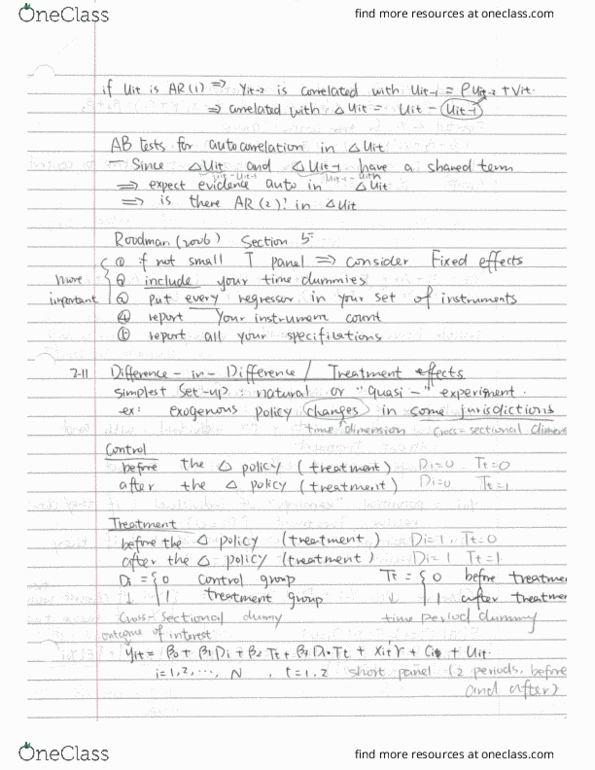 OneClass
find more resources at oneclass.com
if Uit is AR(1) ⇒ Yit-2 is correlated with Uit-1 = ρUit-2 + Vit.
⇒ correlated with △Uit = Uit - Uit-1
AB tests for autocorrelation in △Uit
- Since △Uit and △Uit-1 have a shared term
Uit - Uit-1
⇒ expect evidence auto in △Uit
⇒ is there AR(2)? in △Uit
Roodman (2006) Section 5:
① if not small T panel ⇒ consider Fixed effects
more important
② include your time dummies
put every regressor in your set of instruments
④ report your instrument count
report all your specifications
2-11 Difference-in-Difference / Treatment effects
simplest set-up: natural or "quasi-" experiment.
ex: exogenous policy changes in some jurisdictions
time dimension cross-sectional dimens
Control
before the △ policy (treatment) Di=0 Tt=0
after the △ policy (treatment) Di=0 Tt=1
Treatment
before the △ policy (treatment) Di=1, Tt=0
after the △ policy (treatment) Di=1 Tt=1
Di = { 0 control group Tt = { 0 before treatme
↓ 1 treatment group ↓ 1 after treatme
Cross-sectional dummy time period dummy
outcome of interest
yit = β0 + β1 Di + β2 Tt + β3 Di·Tt + Xit'γ + Ci + Uit
i=1,2,…, N , t=1,2 short panel (2 periods, before
and after)
OneClass
find more resources at oneclass.com